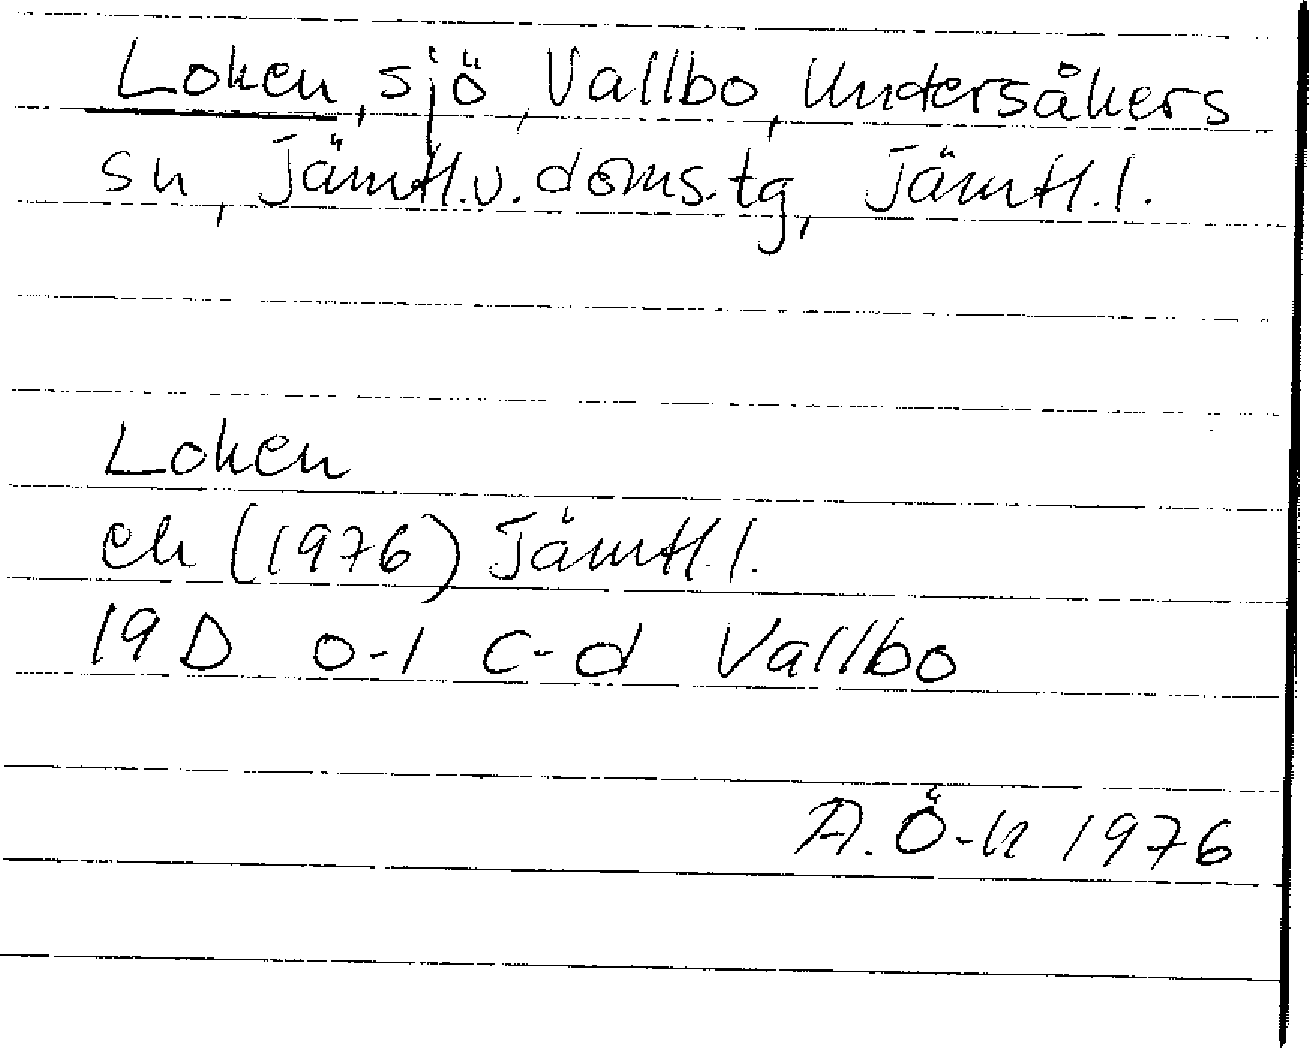 Loken, sjö, Vallbo, Undersåkers
sn, Jämtl.v.doms.tg, Jämtl.l.
Loken
ek (1976) Jämtl.l.
19 D 0-1 c-d Vallbo
A. Ö-k 1976